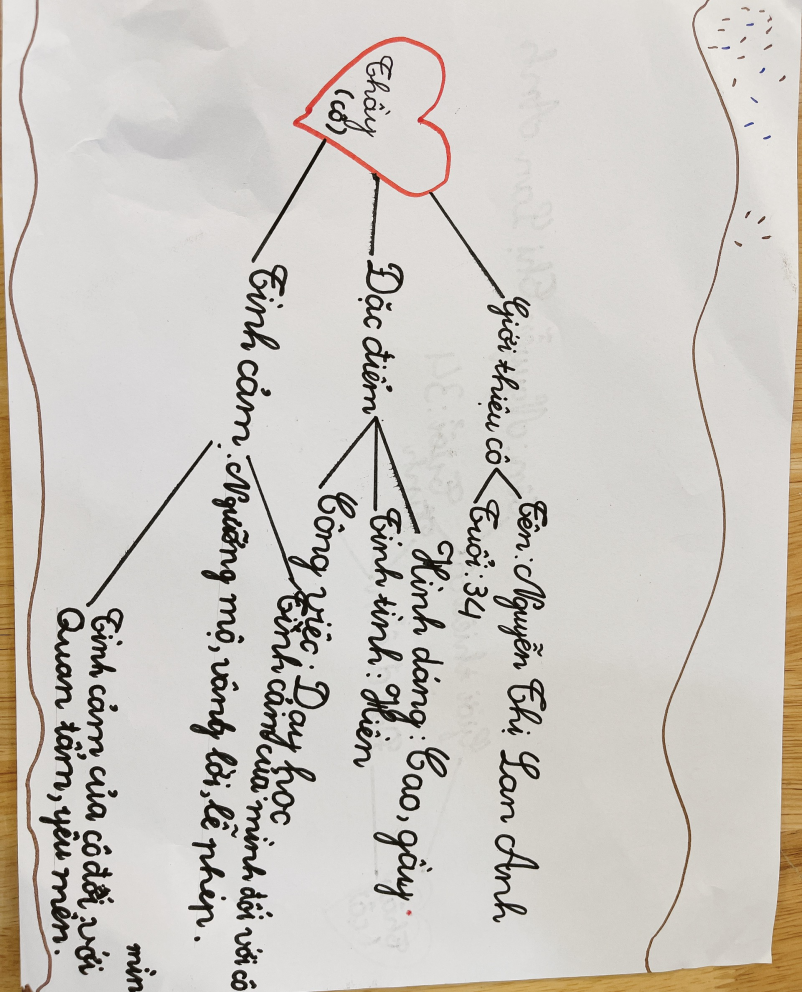 Thầy
(cô)
Giới thiệu cô
Tên: Nguyễn Thị Lan Anh
Tuổi: 34
Đặc điểm
Hình dáng: Cao, gầy.
Tính tình: Hiền
Công việc: Dạy học
Tình cảm
Tình cảm của mình đối với cô
: Ngưỡng mộ, vâng lời, lễ phép.
Tình cảm của cô đối với
mìn
Quan tâm, yêu mến.